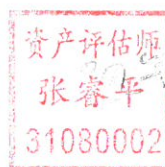 资产评估师
张睿平
31080002